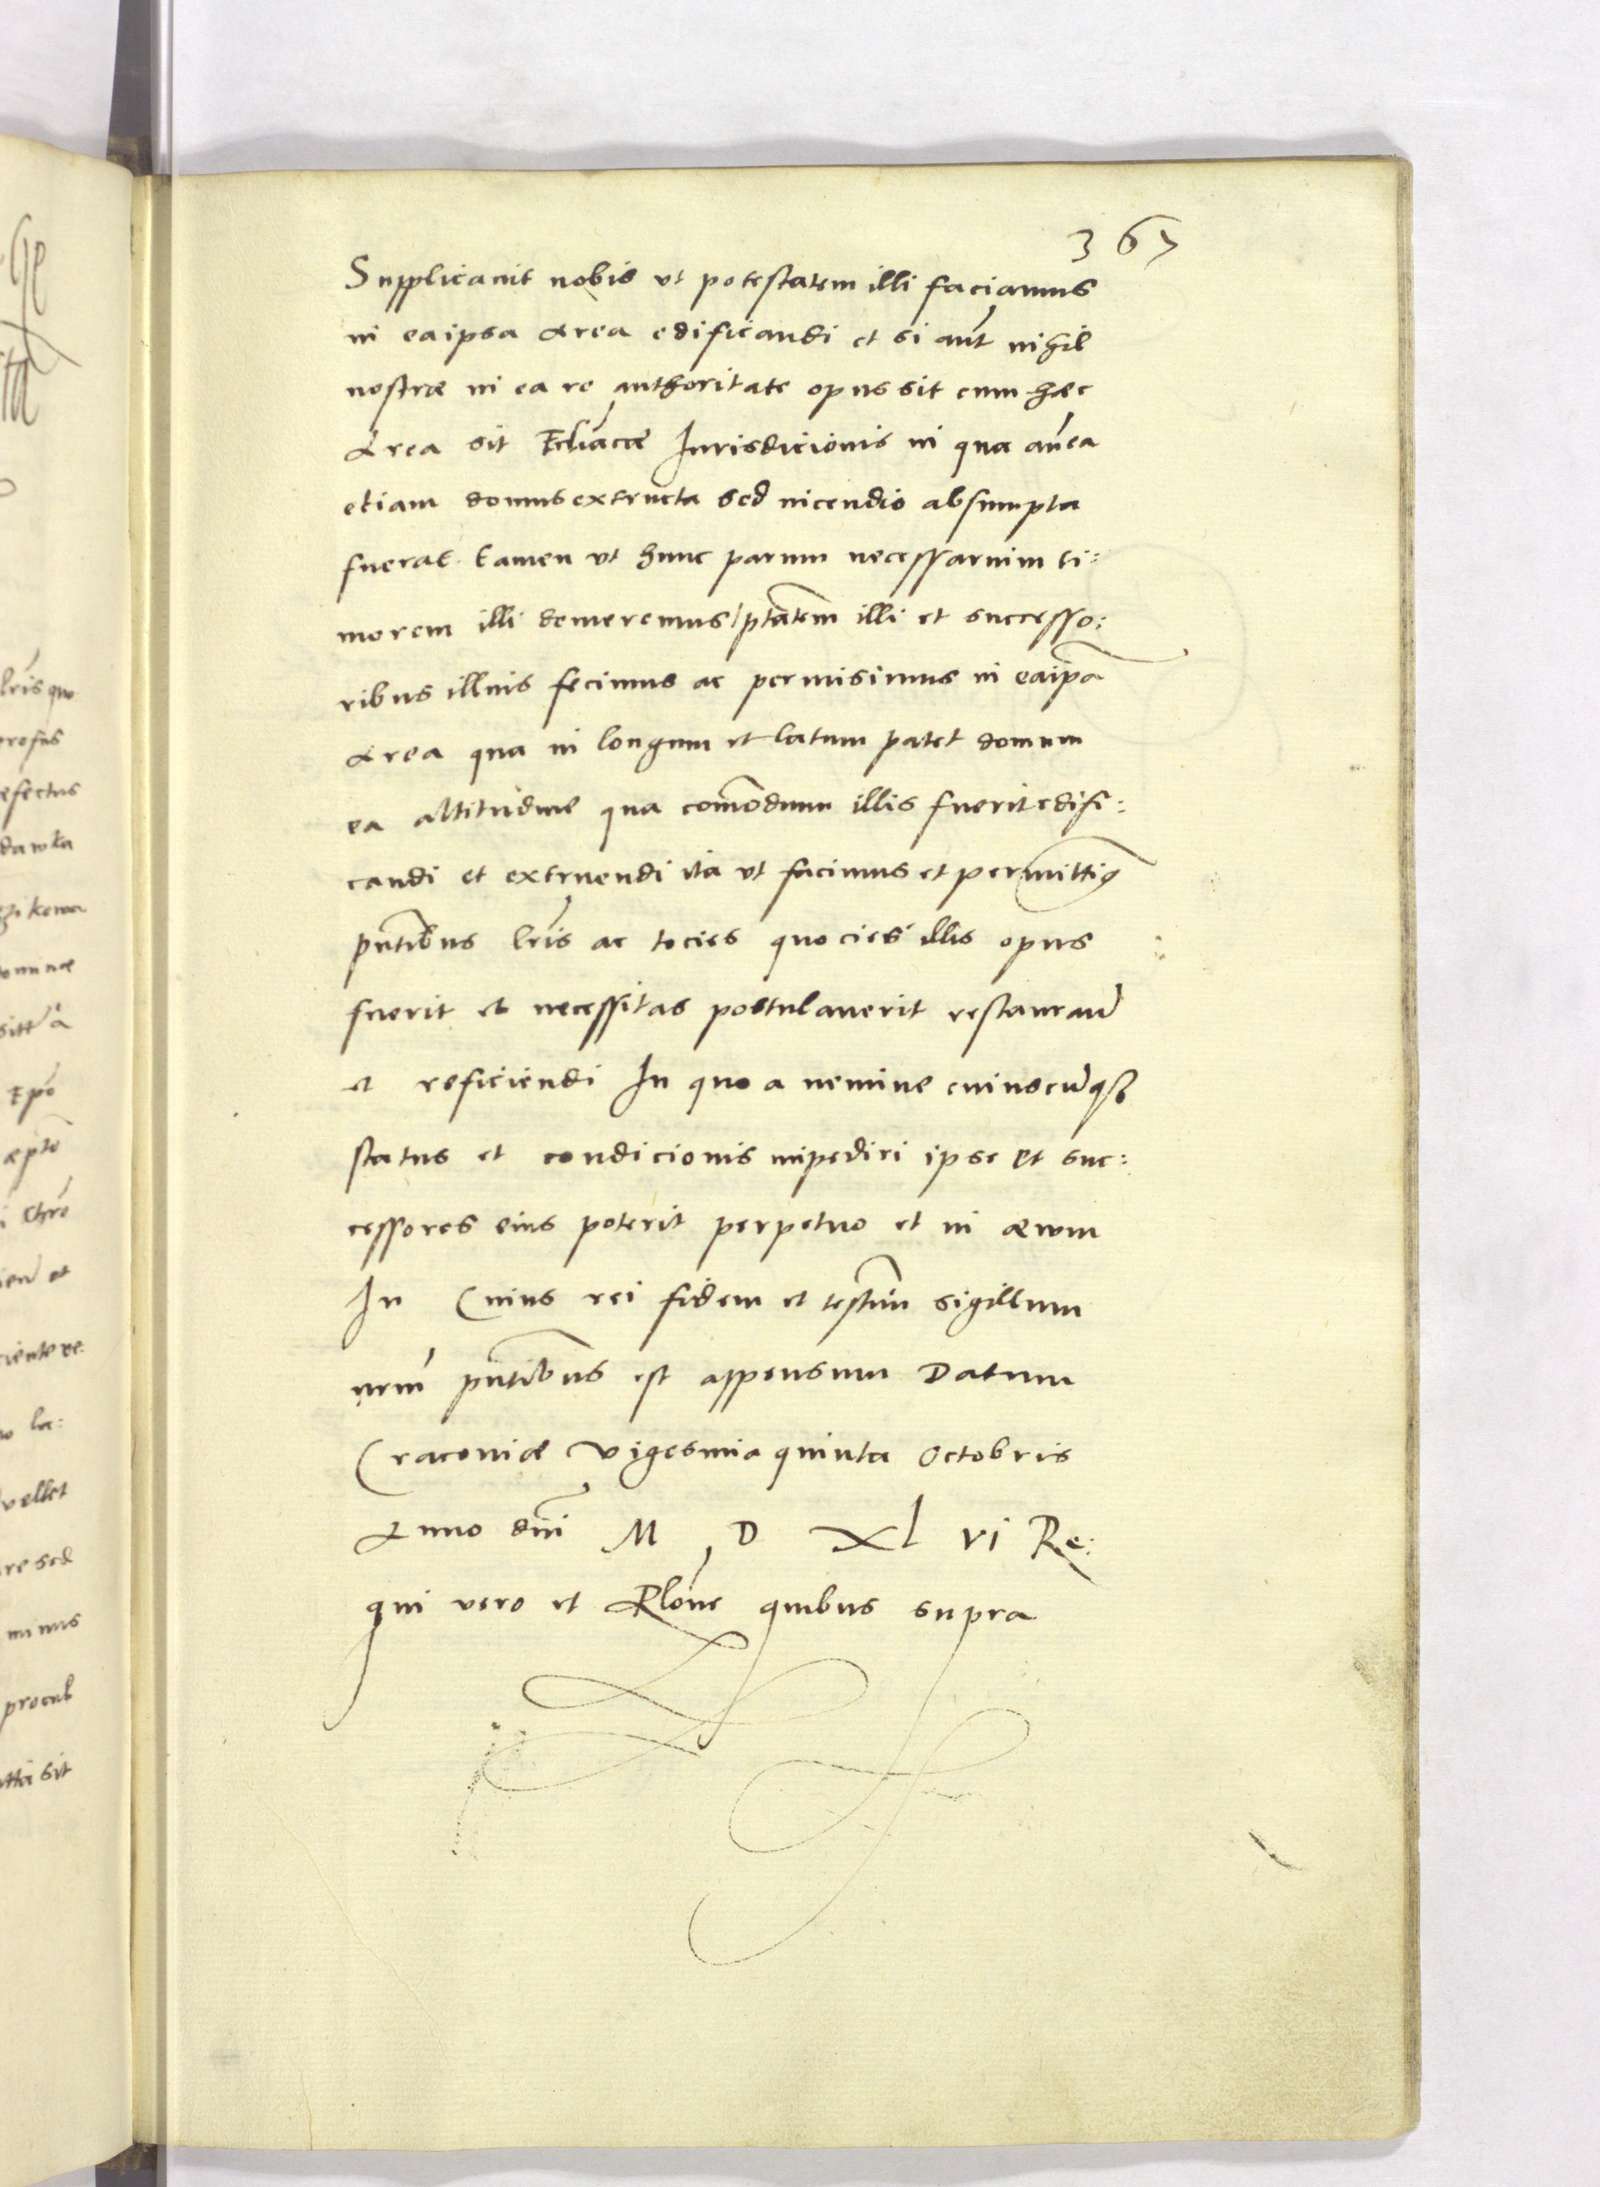 367
Supplicauit nobis vt potestatem illi faciamus
in eaipsa Area edificandi et si aūt nihil
nostræ in ea re authoritate opus sit cum hæc
Area sit Eccliacæ Jurisdicionis in qua añea
etiam domus extructa sed incendio absumpta
fuerat tamen vt hunc parum necessarium ti:
morem illi demeremus / ptātem illi et successo:
ribus illius fecimus ac permisimus in eaipā
Area qua in longum et latum patet domum
ea altitudine qua com̄odum illis fuerit edifi:
candi et extruendi ita vt facimus et permittimꝰ
pn̄tibus lr̄is ac tocies quocies illis opus
fuerit et necessitas postulauerit restaurand̄
et reficiendi In quo a nemine cuiuscūqꝫ
status et condicionis impediri ipse et suc:
cessores eius poterit perpetuo et in æwm
In Cuius rei fidem et testim̄ sigillum
nr̄m pn̄tibus est appensum Datum
Cracouiæ vigesima quinta Octobris
Anno dn̄i M D XL vi Re:
qui vero et Rlōne quibus supra